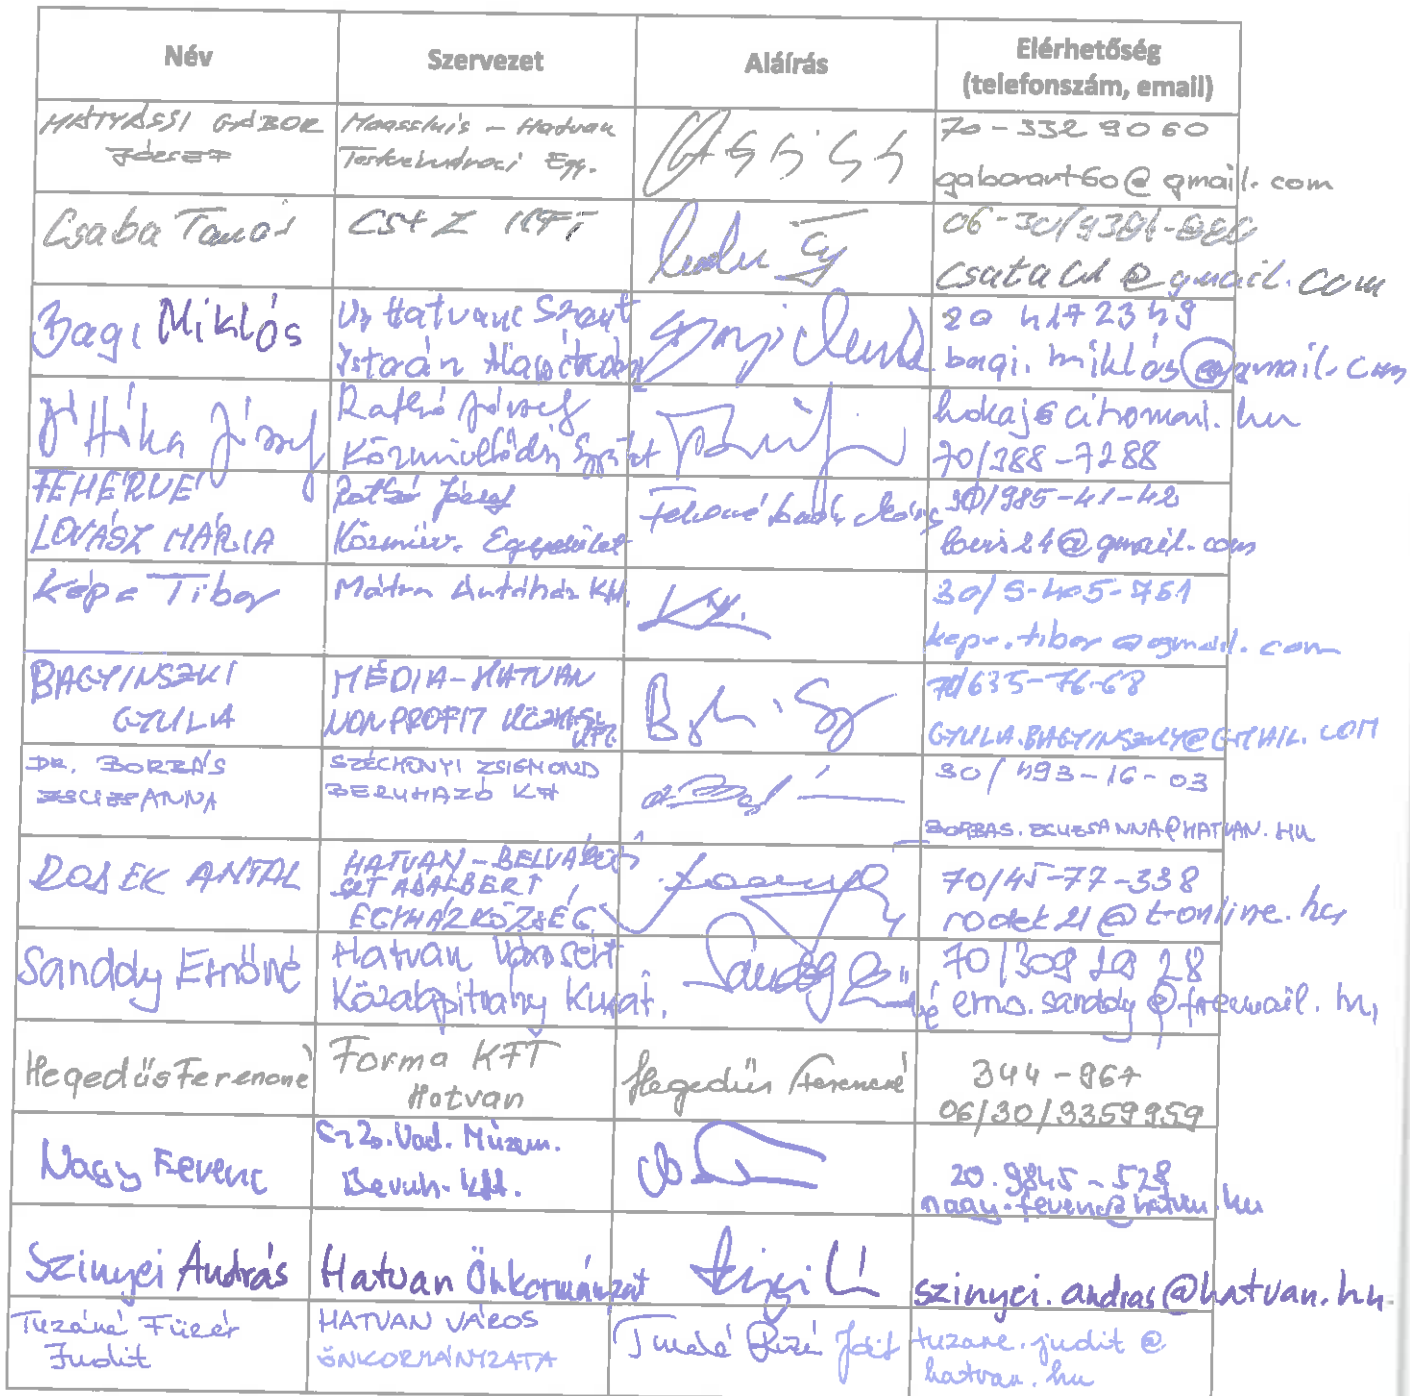 Név
Szervezet
Aláírás
Elérhetőség
(telefonszám, email)
MÁTYÁSSI GÁBOR
JÓZSEF
Maassluis - Hatvan
Testvérvárosi Egy.
70-332 9060
gaborart60@gmail.com
Csaba Tamás
CS+Z KFT
csataci@gmail.com
Bagi Miklós
Új Hatvani Szent
István Alapítvány
20 417 23 49
bagi.miklós@gmail.com
Hóka József
Ratkó József
Közművelődési
hokaj@citromail.hu
70/388-7288
FEHÉRNÉ
LOVÁSZ MÁRIA
Ratkó József
Közműv. Egyesület
30/985-41-42
@gmail.com
Képe Tibor
Mátra Autóház Kft.
30/9-405-761
kepe.tibor@gmail.com
BAGYINSZKI
GYULA
MÉDIA-HATVAN
NONPROFIT KÖZHASZ.
KFT.
70/635-76-68
GYULA.BAGYINSZKY@GMAIL.COM
DR. BORBÁS
ZSUZSANNA
SZÉCHENYI ZSIGMOND
BERUHÁZÓ Kft
30/493-16-03
BORBAS.ZSUZSANNA@HATVAN.HU
ROSEK ANTAL
HATVAN-BELVÁROSI
SZT ADALBERT
EGYHÁZKÖZSÉG
70/45-77-338
@t-online.hu
Sanddy Ernőné
Hatvan Városért
Közalapítvány Kurat.
70/309 29 28
erno.sanddy@freemail.hu
Hegedűs Ferencné
Forma KFT
Hatvan
Hegedűs Ferencné
344-967
06/30/3359959
Nagy Ferenc
Sz Zs. Vad. Múzeum.
Beruh. Kft.
20.9845-528
nagy.ferenc@hatvan.hu
Szinyei András
Hatvan Önkormányzat
szinyei.andras@hatvan.hu
Tuzáné Füzér
Judit
HATVAN VÁROS
ÖNKORMÁNYZATA
tuzane.judit@
hatvan.hu